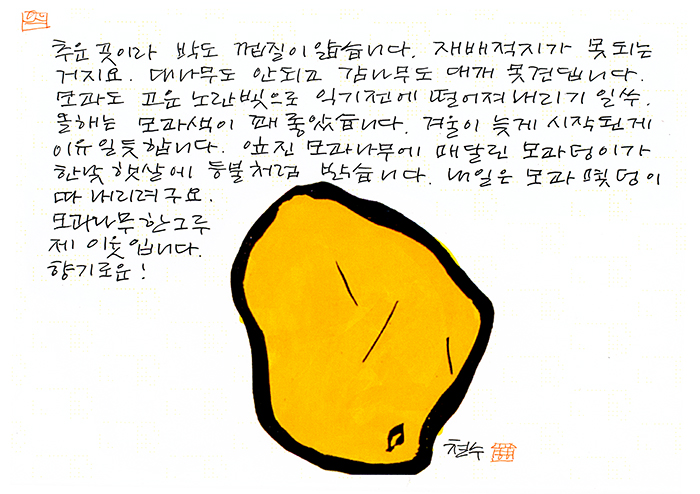 추운 곳이라 박도 껍질이 얇습니다. 재배적지가 못되는
거지요. 대나무도 안되고 감나무도 대개 못견딥니다.
모과도 고운 노란빛으로 익기전에 떨어져내리기 일쑤.
올해는 모과색이 꽤 좋았습니다. 겨울이 늦게 시작된게
이유일듯합니다. 잎진 모과나무에 매달린 모과덩이가
한낮 햇살에 등불처럼 밝습니다. 내일은 모과 몇덩이
따 내리려구요.
모과나무 한그루
제 이웃입니다.
향기로운!
철수